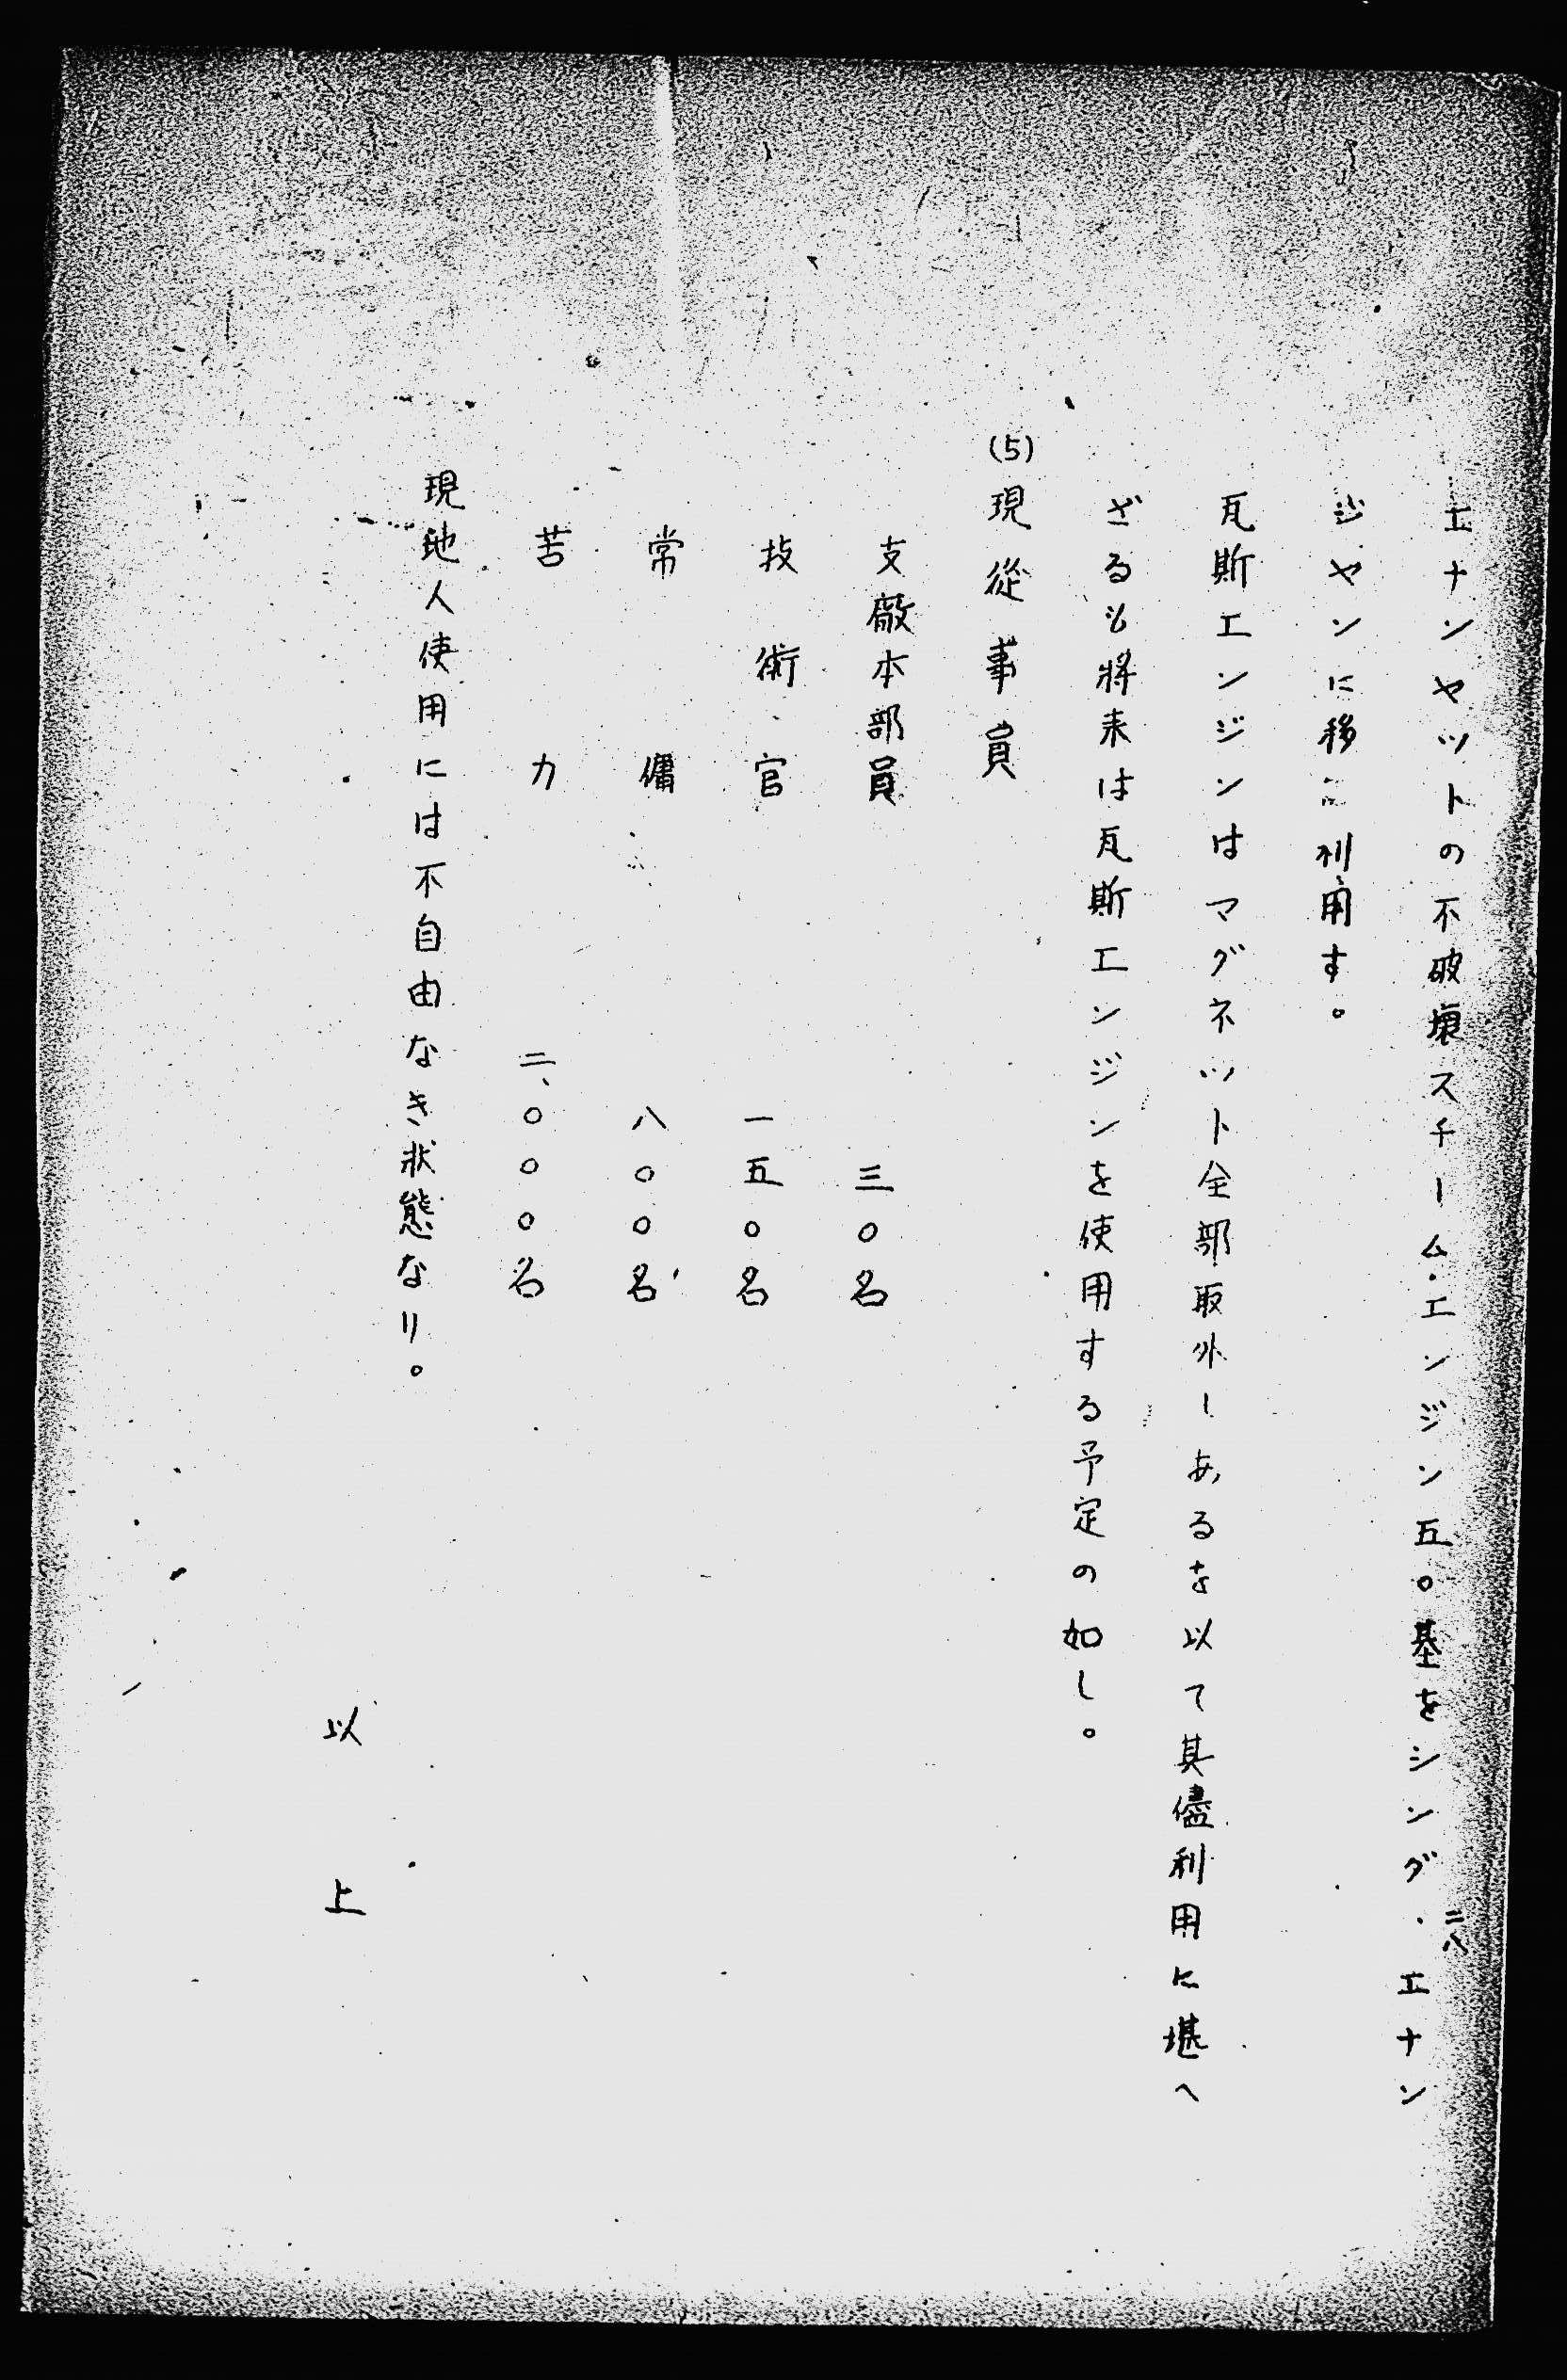 エナンヤットの不破壊スチーム・エンジン五〇基をシング・エナン
ジヤンに移し利用す。
瓦斯エンジンはマグネツト全部取外しあるを以て其儘利用に堪へ
ざるも将来は瓦斯エンジンを使用する予定の如し。
(5)現従事員
支廠本部員 三〇名
技術官 一五〇名
常傭 八〇〇名
苦力 二、〇〇〇名
現地人使用には不自由なき状態なり。
以上
二八